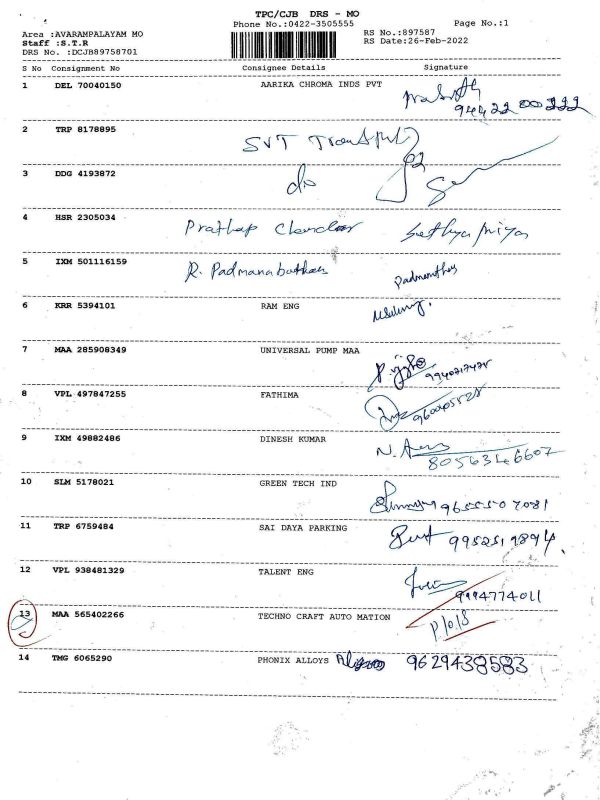 TPC/CJB DRS - MO
Phone No.:0422-3505555
Page No.:1
Area :AVARAMPALAYAM MO
RS No.:897587
Staff :S.T.R
RS Date:26-Feb-2022
DRS No. :DCJB89758701
S No Consignment No Consignee Details Signature
1 DEL 70040150 AARIKA CHROMA INDS PVT
94422 00222
2 TRP 8178895 SVT
3 DDG 4193872 do
4 HSR 2305034 Prathap Chandar Sathyapriya
5 IXM 501116159 R. Padmanabathan
6 KRR 5394101 RAM ENG
7 MAA 285908349 UNIVERSAL PUMP MAA
8 VPL 497847255 FATHIMA
9 IXM 49882486 DINESH KUMAR
8056346607
10 SLM 5178021 GREEN TECH IND
9655507081
11 TRP 6759484 SAI DAYA PARKING
9952519894
12 VPL 938481329 TALENT ENG
9994774011
13 MAA 565402266 TECHNO CRAFT AUTO MATION
14 TMG 6065290 PHONIX ALLOYS 9629438583